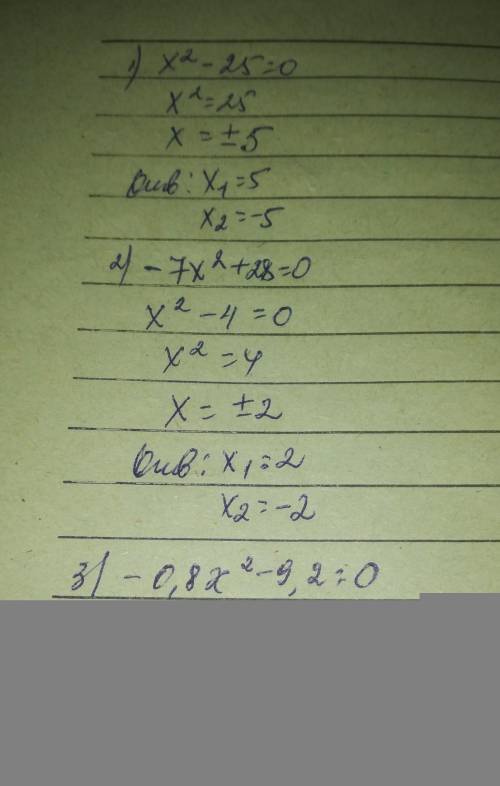 1) x² - 25 = 0
x² = 25
x = ±5
Отв: x₁ = 5
x₂ = -5
2) -7x² + 28 = 0
x² - 4 = 0
x² = 4
x = ±2
Отв: x₁ = 2
x₂ = -2
3) -0,8x² - 9,2 = 0